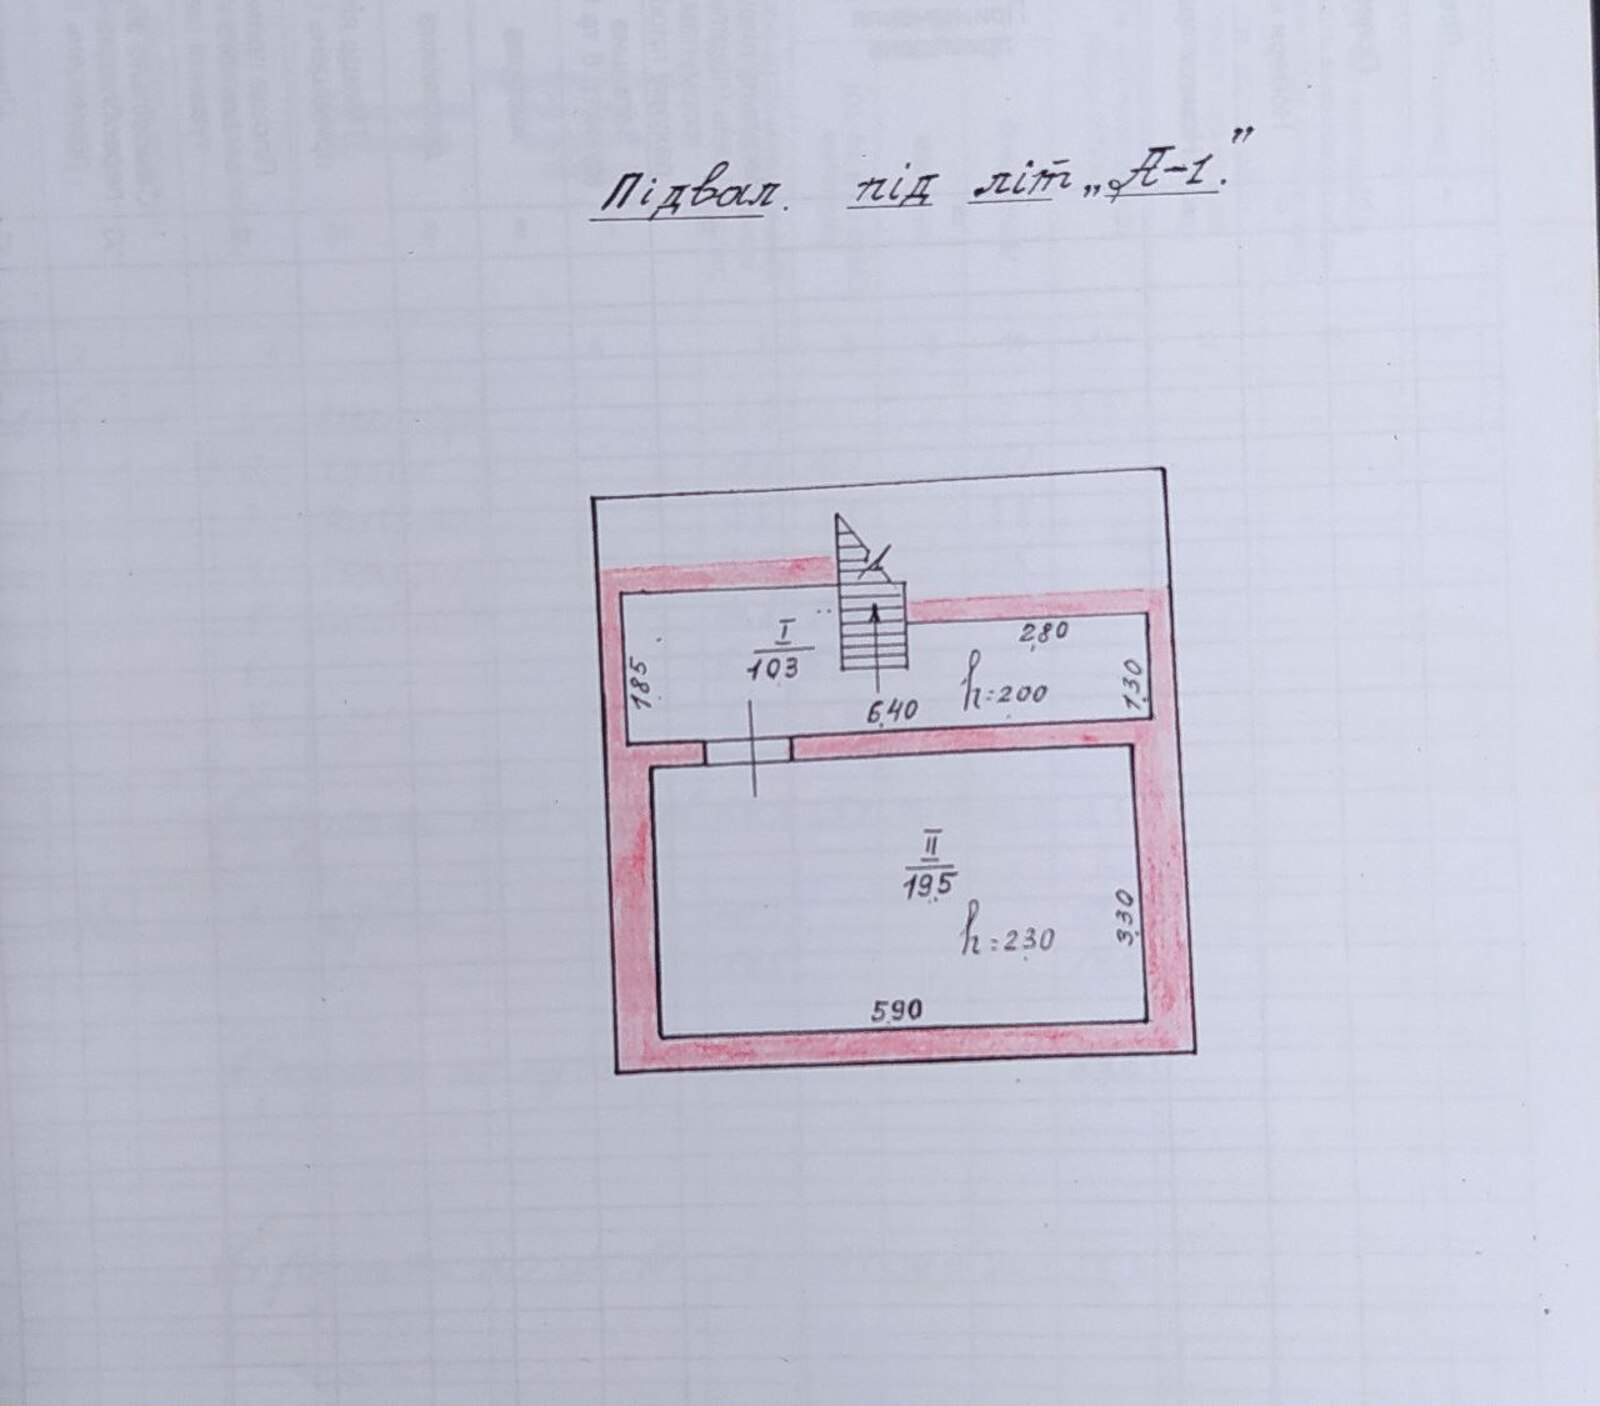 Підвал. під літ „А-1."
2,80
I
10,3
1,85
h=2,00
1,30
6,40
II
19,5
h=2,30
3,30
5,90